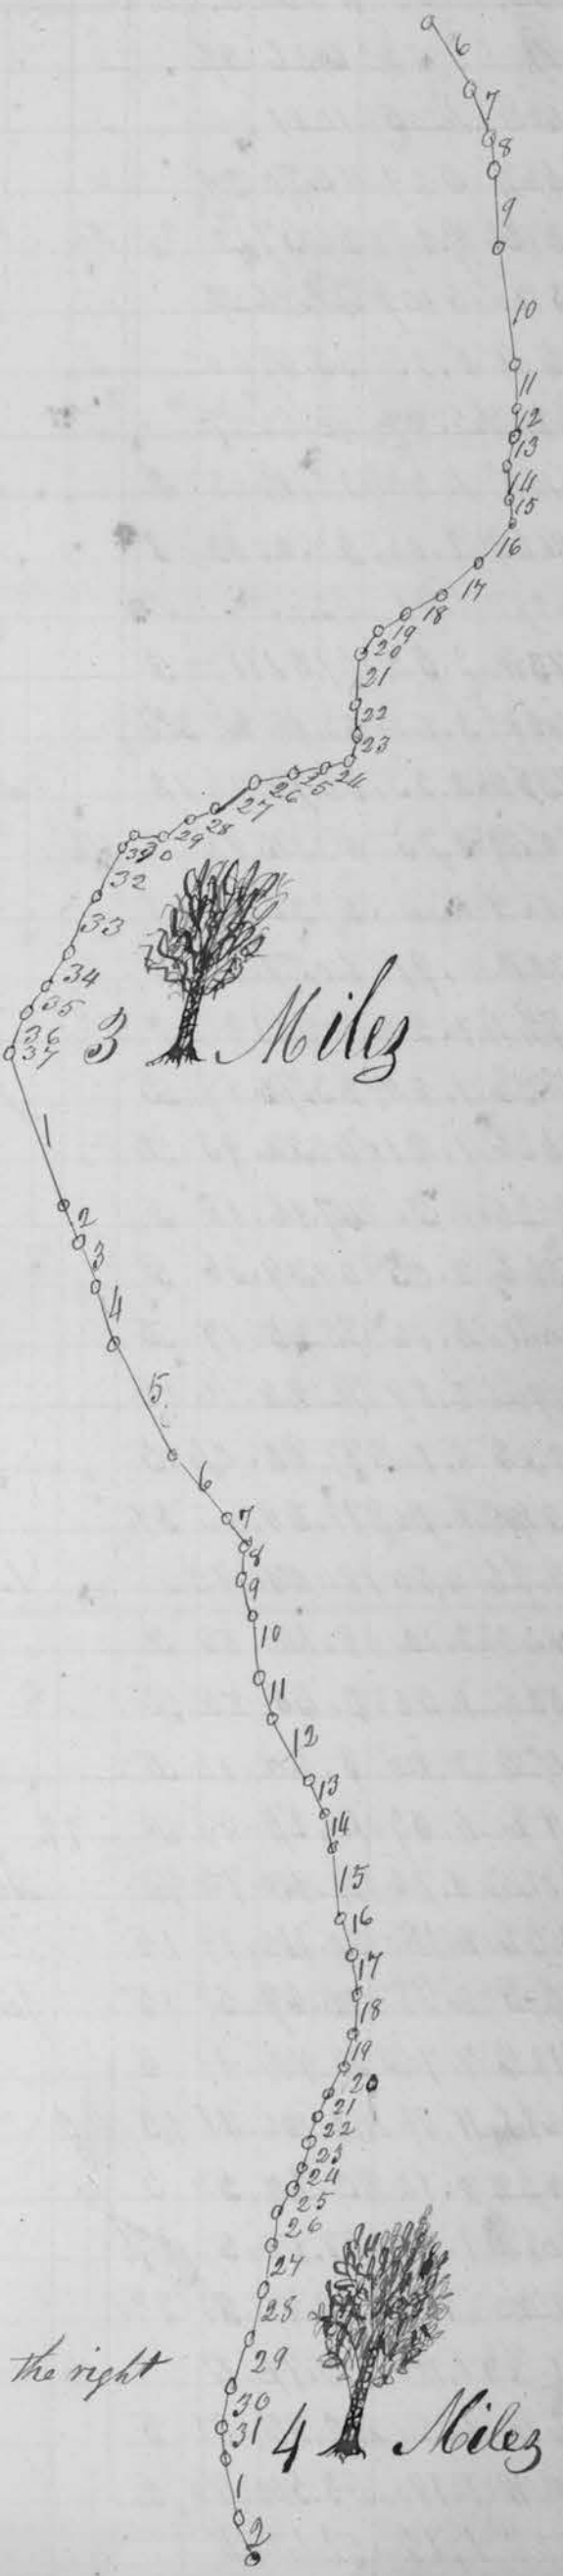 6
7
8
9
10
11
12
13
14
15
16
17
18
19
20
21
22
23
24
25
26
27
28
29
30
31
32
33
34
35
36
37
3 Miles
1
2
3
4
5
6
7
8
9
10
11
12
13
14
15
16
17
18
19
20
21
22
23
24
25
26
27
28
29
the right
30
31
4 Miles
1
2